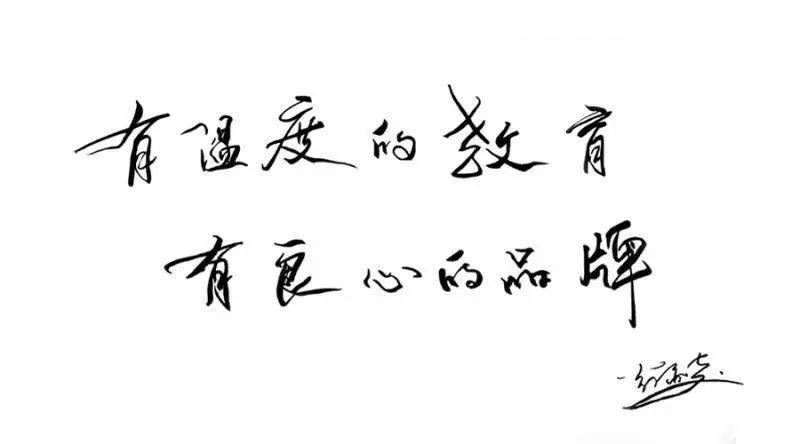 有温度的教育
有良心的品牌